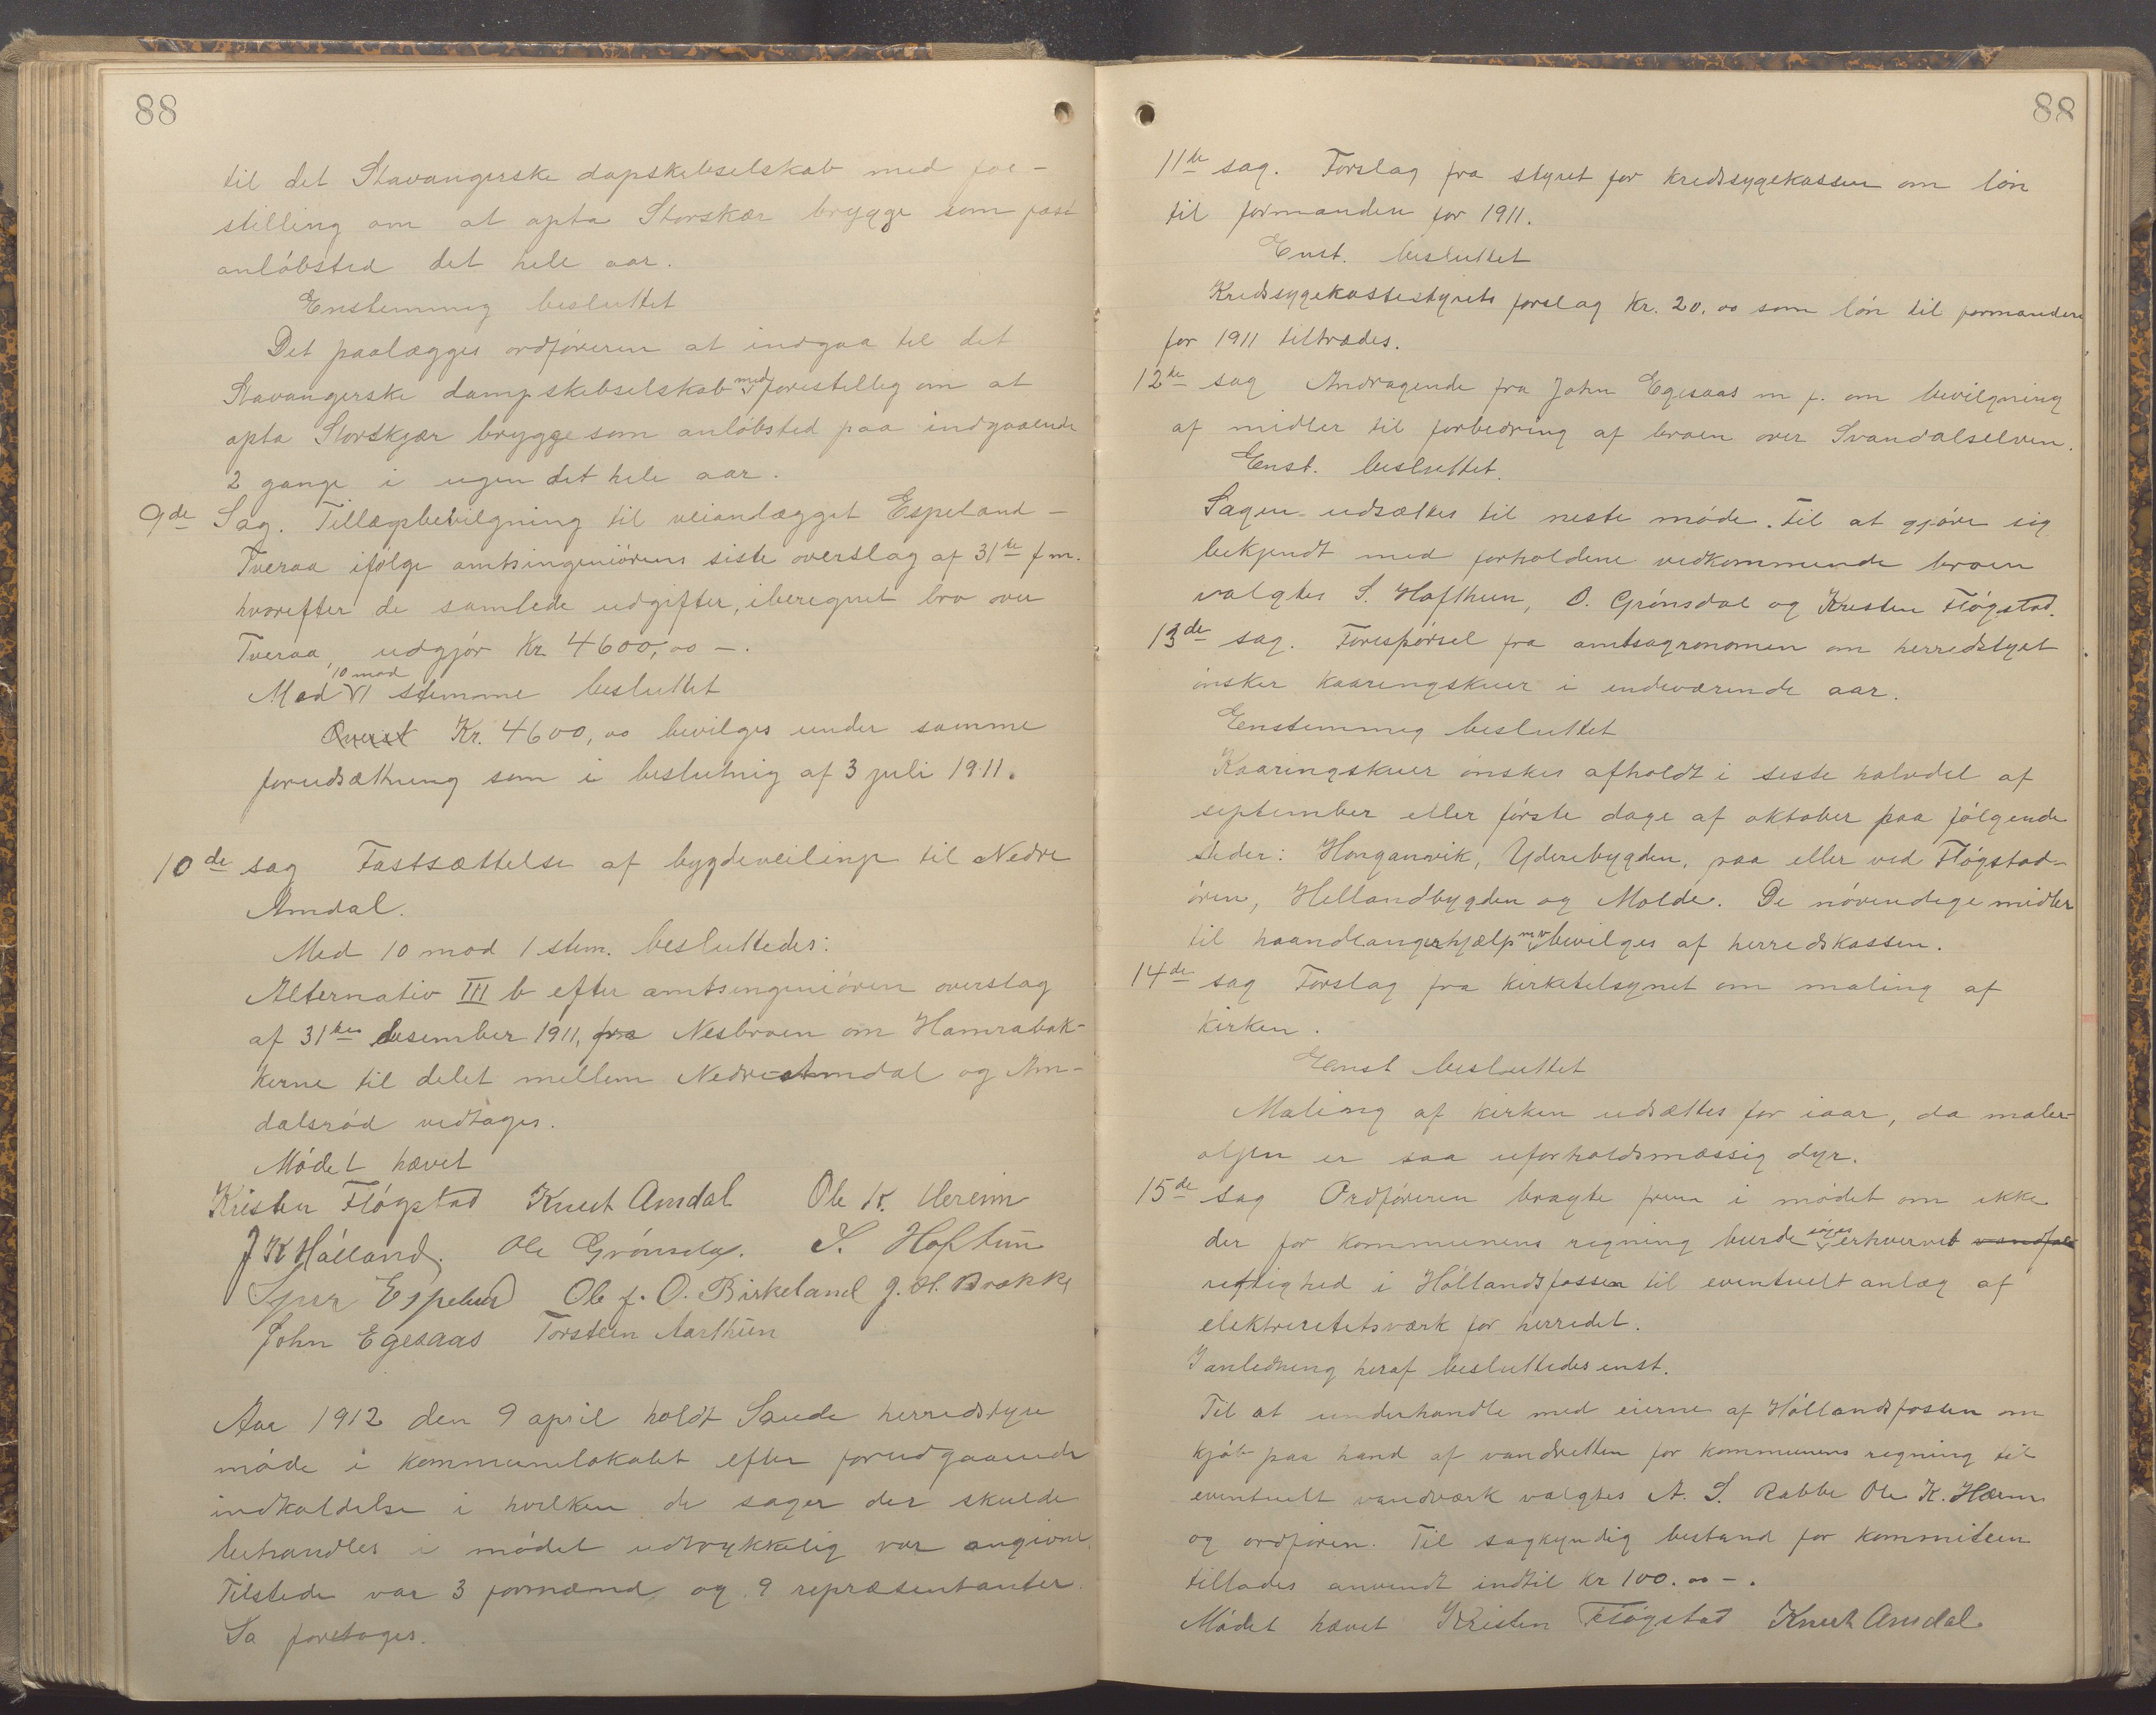 88
til det Stavangerske dapskebselskab med fore-
stilling om at opta Storskær brygge som fast
anløbsted det hele aar.
Enstemmig besluttet
Det paalægges ordføreren at indgaa til det
Stavangerske dampskebselskab med forestillig om at
opta Storskjær brygge som anløbsted paa indgaaende
2 gange i ugen det hele aar.
9de Sag. Tillægsbevilgning til veianlægget Espeland-
Tveraa ifølge amtsingeniørens siste overslag af 31te f.m.
hvorefter de samlede udgifter, iberegnet bro over
Tveraa, udgjør Kr. 4600,00 -.
Med 10 mod 1 stemme besluttet
Kr. 4600,00 bevilges under samme
forudsættning som i beslutnig af 3 juli 1911.
10de sag Fastsættelse af bygdeveilinje til Nedre
Amdal.
Med 10 mod 1 stem. besluttedes:
Alternativ III b efter amtsingeniøren overslag
af 31tes desember 1911, fra Nesbroen om Hamrabak-
kerne til delet mellem Nedre Amdal og Am-
dalsrød vedtages.
Mødet hævet
Kristen Fløgstad Knut Amdal Ole K. Hereim
J K Hålland. Ole Grønsdal. S. Hoftun
Espeland Ole j. O. Birkeland J. H. Brække
John Egesaas Torstein Aarthun
Aar 1912 den 9 april holdt Saude herredstyre
møde i kommunelokalet efter forudgaaende
indkaldelse i hvilken de sager der skulde
behandles i mødet udtrykkelig var angivne.
Tilstede var 3 formænd og 9 repræsentanter.
Sa foretoges.
88
11te sag. Forslag fra styret for kredssygekassen om løn
til formanden for 1911.
Enst. besluttet
Kredssygekassestyrets forslag Kr. 20.00 som løn til formanden
for 1911 tiltrædes.
12te sag Andragende fra John Egesaas m fl. om bevilgning
af midler til forbedring af broen over Svandalselven.
Enst. besluttet.
Sagen udsættes til neste møde. Til at gjøre sig
bekjendt med forholdene vedkommende broen
valgtes S. Hofthun, O. Grønsdal og Kristen Fløgstad.
13de sag. Forespørsel fra amtsagronomen om herredstyret
ønsker kaaringskuer i indeværende aar.
Eenstemmig besluttet
Kaaringskuer ønskes afholdt i siste halvdel af
september eller første dage af oktober paa følgende
steder: Honganvik, Yderebygden, paa eller ved Fløgstad-
øren, Hellandbygden og Molde. De nøvendige midler
til haandlangerhjælp mv bevilges af herredskassen.
14de sag Forslag fra kirketelsynet om maling af
kirken.
Eenst besluttet
Maling af kirken udsættes for iaar, da maler-
oljen er saa uforholdsmæssig dyr.
15de sag Ordføreren bragte frem i mødet om ikke
der for kommunens regning burde søges erhvervet vandfald
rettighed i Høllandsfossen til eventuelt anlæg af
elektricitetsværk for herredet.
I anledning heraf besluttedes enst.
Til at underhandle med eierne af Høllandsfossen om
kjøb paa hand af vandretten for kommunens regning til
eventuelt vandværk valgtes A. S. Rabbe Ole K. Hærem
og ordføren. Til sagkyndig bestand for kommiteen
tillades anvendt indtil kr 100.00 -.
Mødet hævet Kristen Fløgstad Knut Amdal